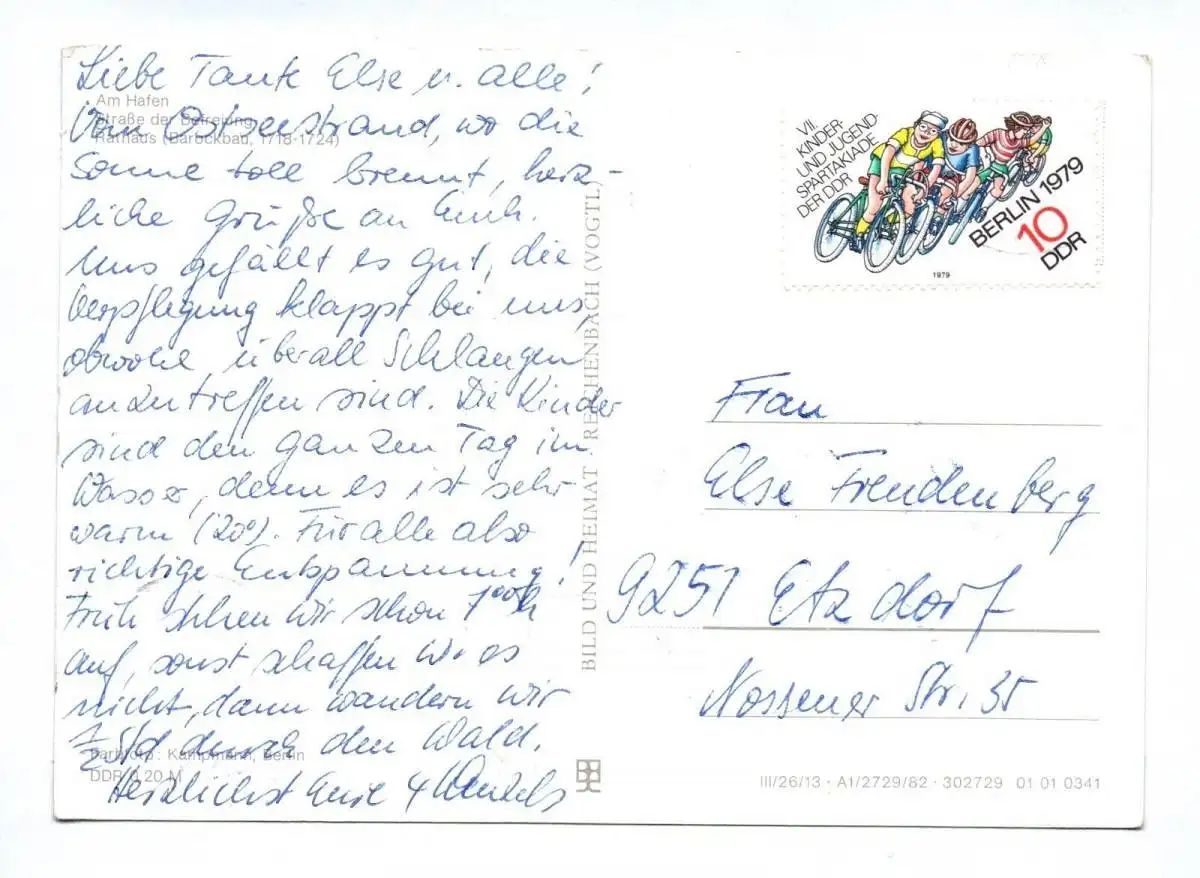 Liebe Tante Else u. alle!
Am Hafen
Straße der Befreiung
Rathaus (Barockbau, 1718-1724)
Vom Ostseestrand, wo die
Sonne toll brennt, herz-
liche Grüße an Euch.
Uns gefällt es gut, die
Verpflegung klappt bei uns,
obwohl überall Schlangen
anzutreffen sind. Die Kinder
sind den ganzen Tag im
Wasser, denn es ist sehr
warm (20°). Für alle also
richtige Entspannung!
Früh stehen wir schon 7⁰⁰h
auf, sonst schaffen wir es
nicht, dann wandern wir
½ Std durch den Wald.
Herzlichst Eure 4
Farbfoto: Kampmann, Berlin
DDR 0,20 M
BILD UND HEIMAT REICHENBACH (VOGTL)
VII.
KINDER-
UND JUGEND-
SPARTAKIADE
DER DDR
BERLIN 1979
10
DDR
1979
Frau
Else Freudenberg
9251 Etzdorf
Nossener Str. 35
III/26/13 · A1/2729/82 · 302729 01 01 0341